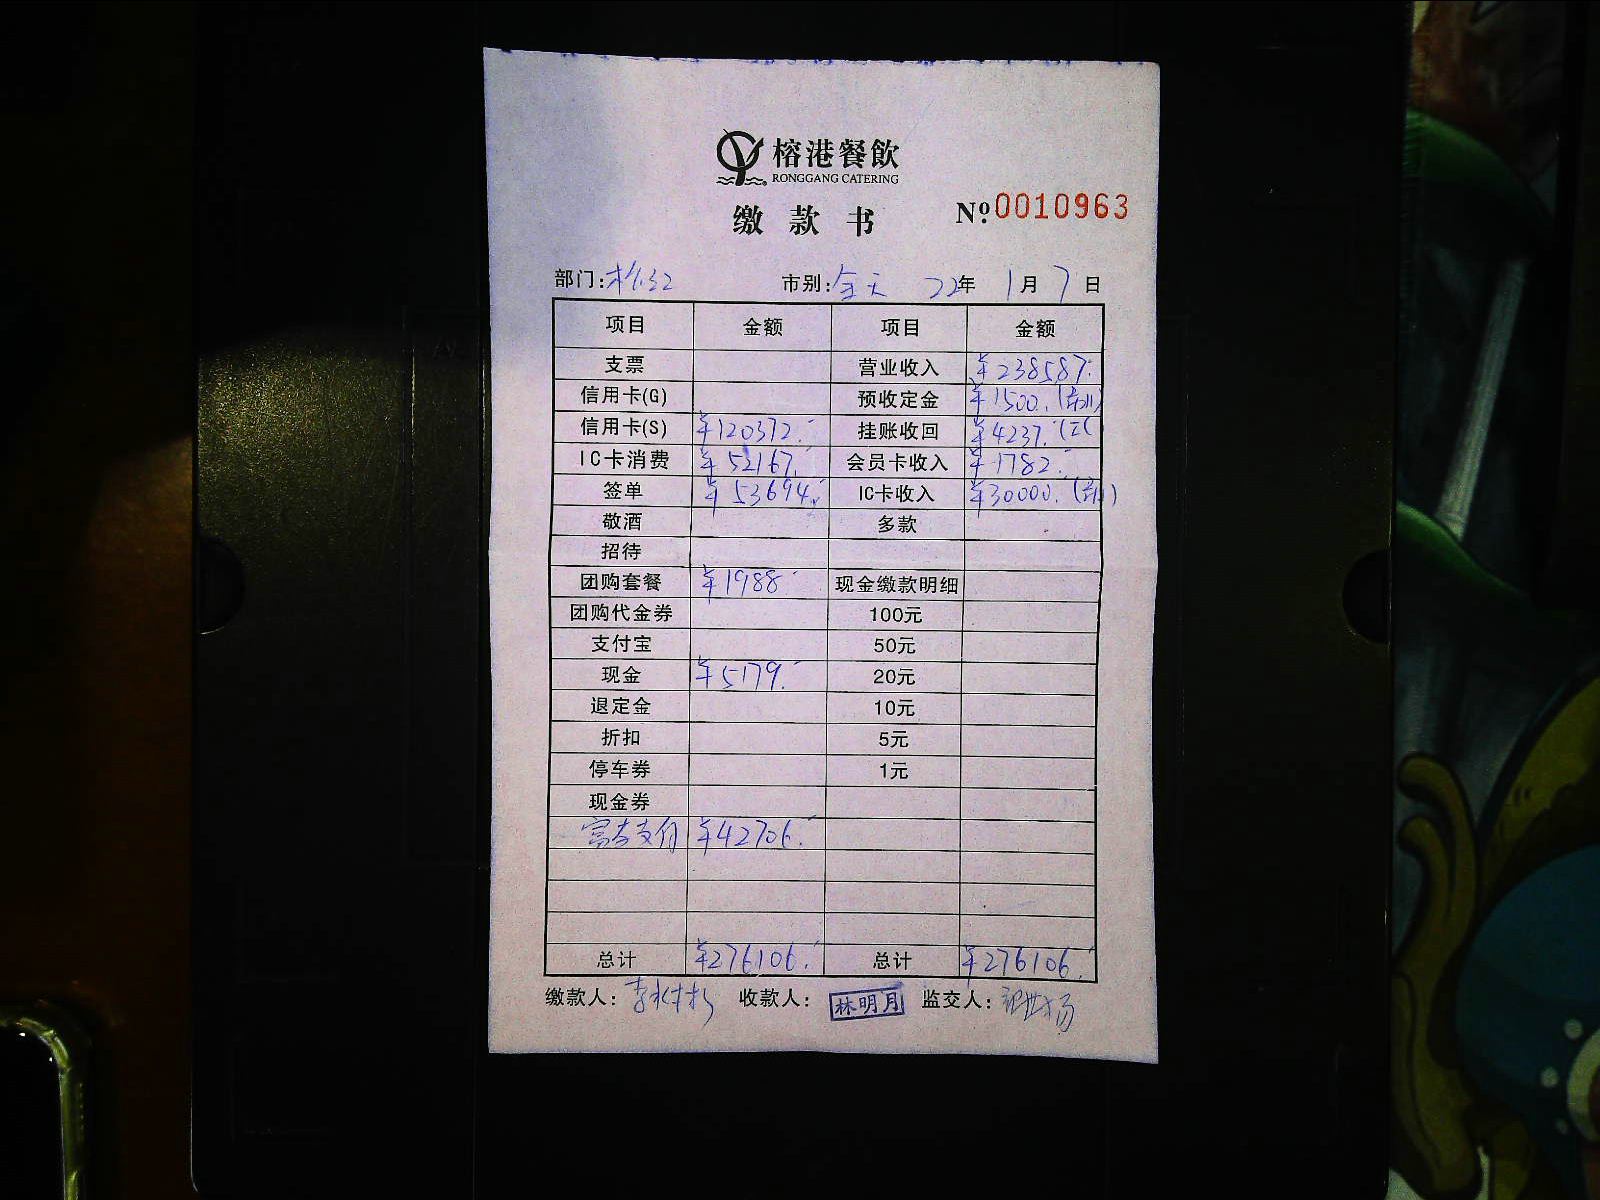 榕港餐飲
RONGGANG CATERING
缴款书 №0010963
部门: 市别:全天 22年 1月 7日
项目 金额 项目 金额
支票 营业收入 ¥238587.
信用卡(G) 预收定金 ¥1500.
信用卡(S) ¥120372. 挂账收回 ¥4237.
IC卡消费 ¥52167. 会员卡收入 ¥1782.
签单 ¥53694. IC卡收入 ¥30000.
敬酒 多款
招待
团购套餐 ¥1988 现金缴款明细
团购代金券 100元
支付宝 50元
现金 ¥5179. 20元
退定金 10元
折扣 5元
停车券 1元
现金券
富友支付 ¥42706.
总计 ¥276106. 总计 ¥276106.
缴款人: 收款人: 林明月 监交人: